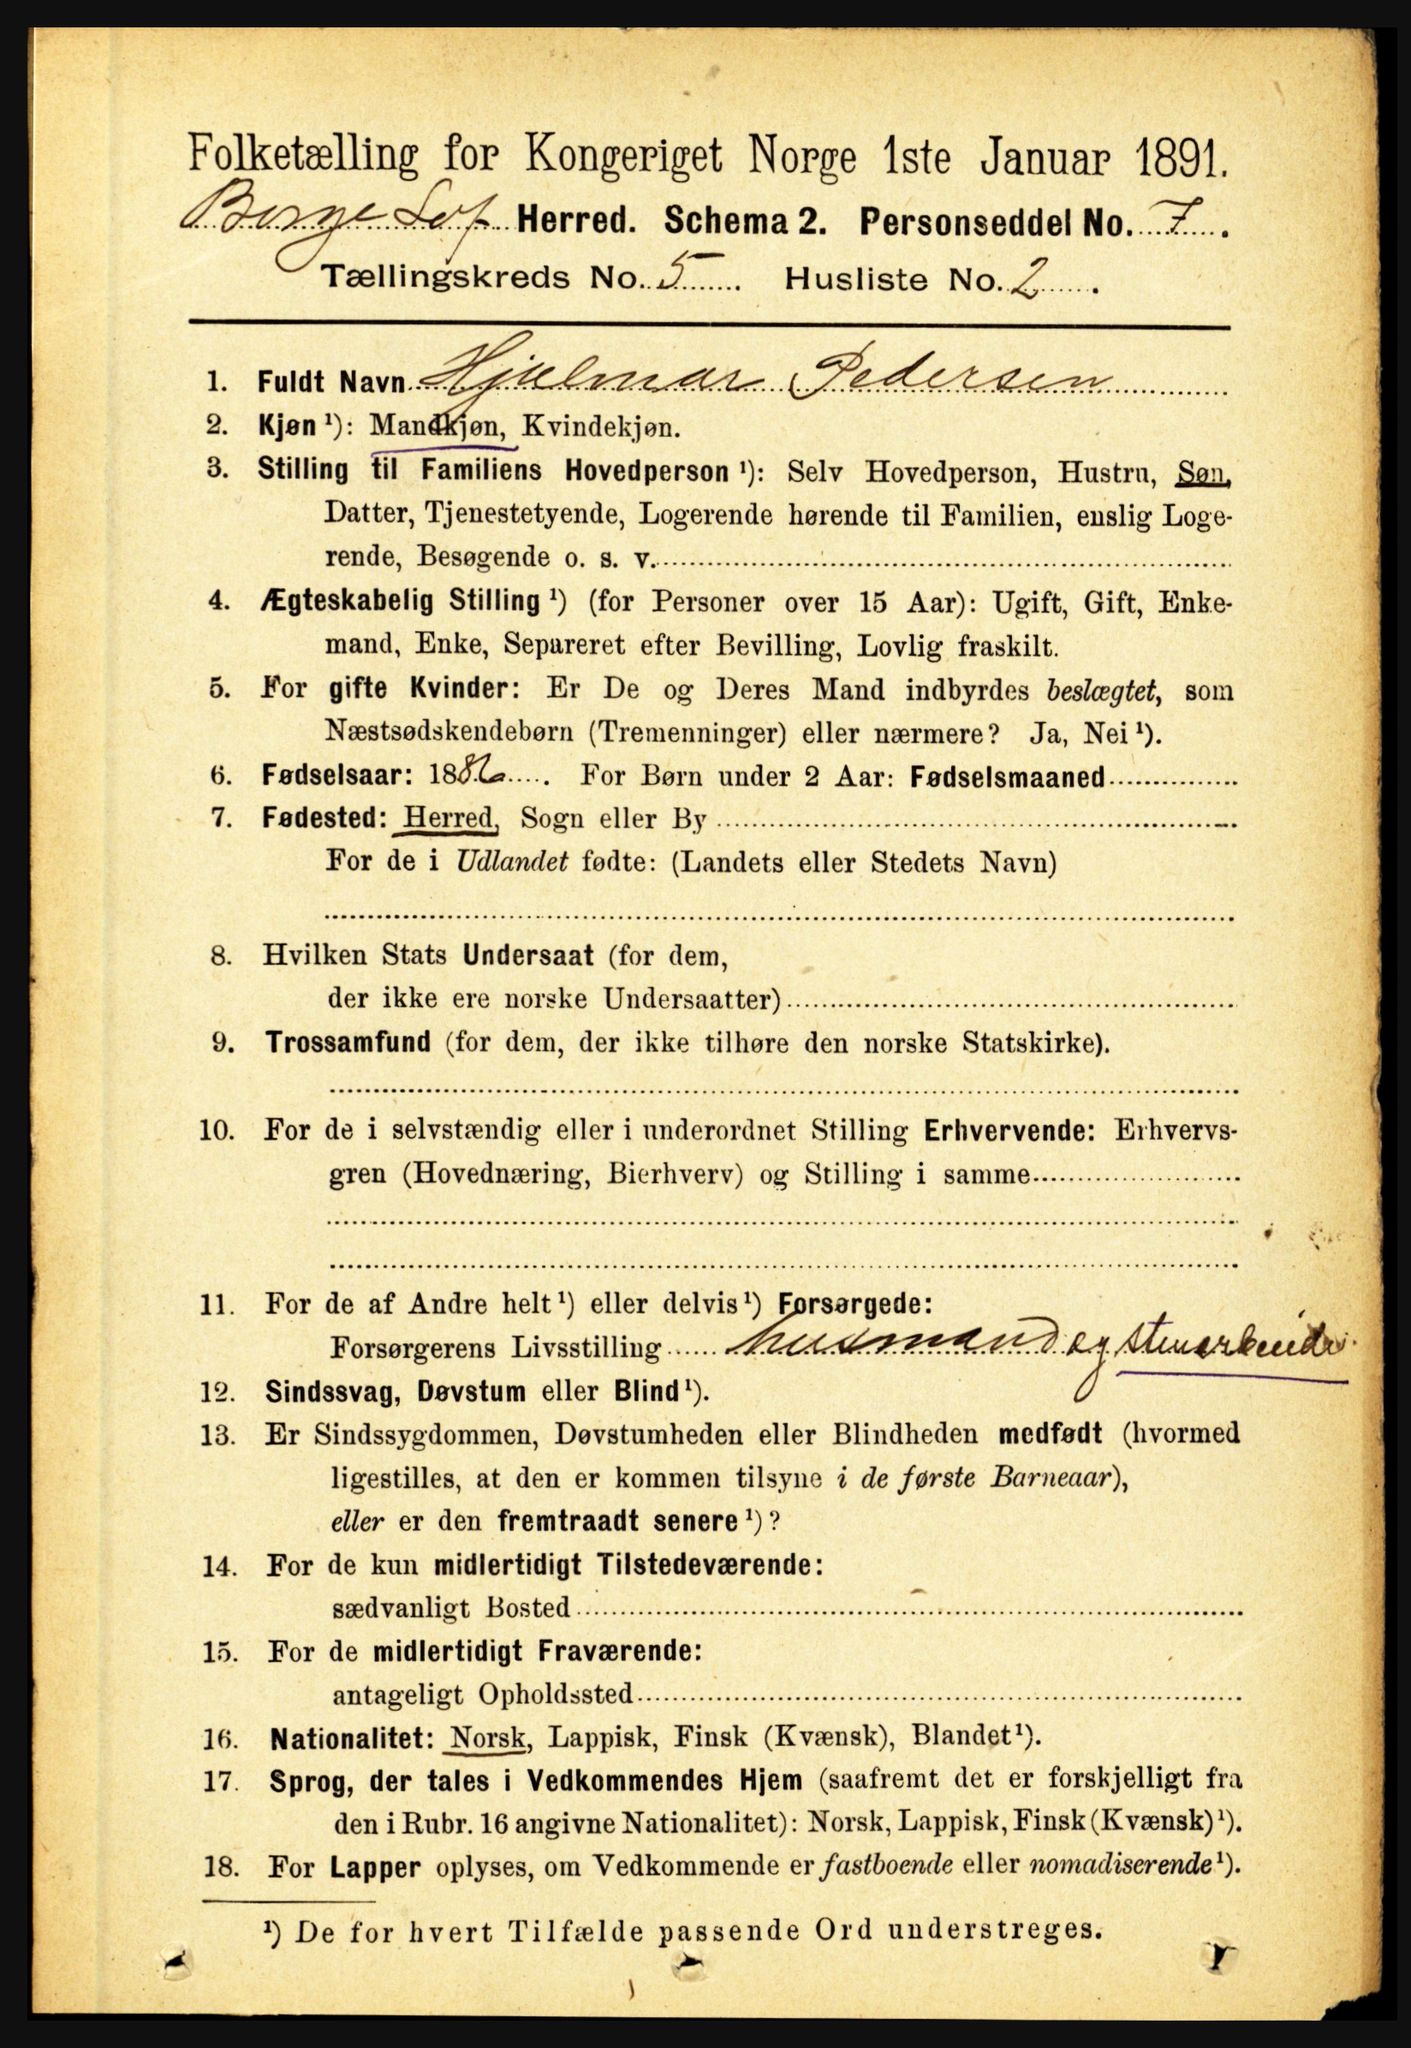 Folketælling for Kongeriget Norge 1ste Januar 1891.
Borge Lof. Herred. Schema 2. Personseddel No. 7.
Tællingskreds No. 5. Husliste No. 2.
1. Fuldt Navn Hjelmar Pedersen
2. Kjøn ¹): Mandkjøn, Kvindekjøn.
3. Stilling til Familiens Hovedperson ¹): Selv Hovedperson, Hustru, Søn,
Datter, Tjenestetyende, Logerende hørende til Familien, enslig Loge-
rende, Besøgende o. s. v.
4. Ægteskabelig Stilling ¹) (for Personer over 15 Aar): Ugift, Gift, Enke-
mand, Enke, Separeret efter Bevilling, Lovlig fraskilt.
5. For gifte Kvinder: Er De og Deres Mand indbyrdes beslægtet, som
Næstsødskendebørn (Tremenninger) eller nærmere? Ja, Nei ¹).
6. Fødselsaar: 1886. For Børn under 2 Aar: Fødselsmaaned
7. Fødested: Herred, Sogn eller By
For de i Udlandet fødte: (Landets eller Stedets Navn)
8. Hvilken Stats Undersaat (for dem,
der ikke ere norske Undersaatter)
9. Trossamfund (for dem, der ikke tilhøre den norske Statskirke).
10. For de i selvstændig eller i underordnet Stilling Erhvervende: Erhvervs-
gren (Hovednæring, Bierhverv) og Stilling i samme
11. For de af Andre helt ¹) eller delvis ¹) Forsørgede:
Forsørgerens Livsstilling husmand og stenarbeider
12. Sindssvag, Døvstum eller Blind ¹).
13. Er Sindssygdommen, Døvstumheden eller Blindheden medfødt (hvormed
ligestilles, at den er kommen tilsyne i de første Barneaar),
eller er den fremtraadt senere ¹)?
14. For de kun midlertidigt Tilstedeværende:
sædvanligt Bosted
15. For de midlertidigt Fraværende:
antageligt Opholdssted
16. Nationalitet: Norsk, Lappisk, Finsk (Kvænsk), Blandet ¹).
17. Sprog, der tales i Vedkommendes Hjem (saafremt det er forskjelligt fra
den i Rubr. 16 angivne Nationalitet): Norsk, Lappisk, Finsk (Kvænsk) ¹).
18. For Lapper oplyses, om Vedkommende er fastboende eller nomadiserende ¹).
¹) De for hvert Tilfælde passende Ord understreges.